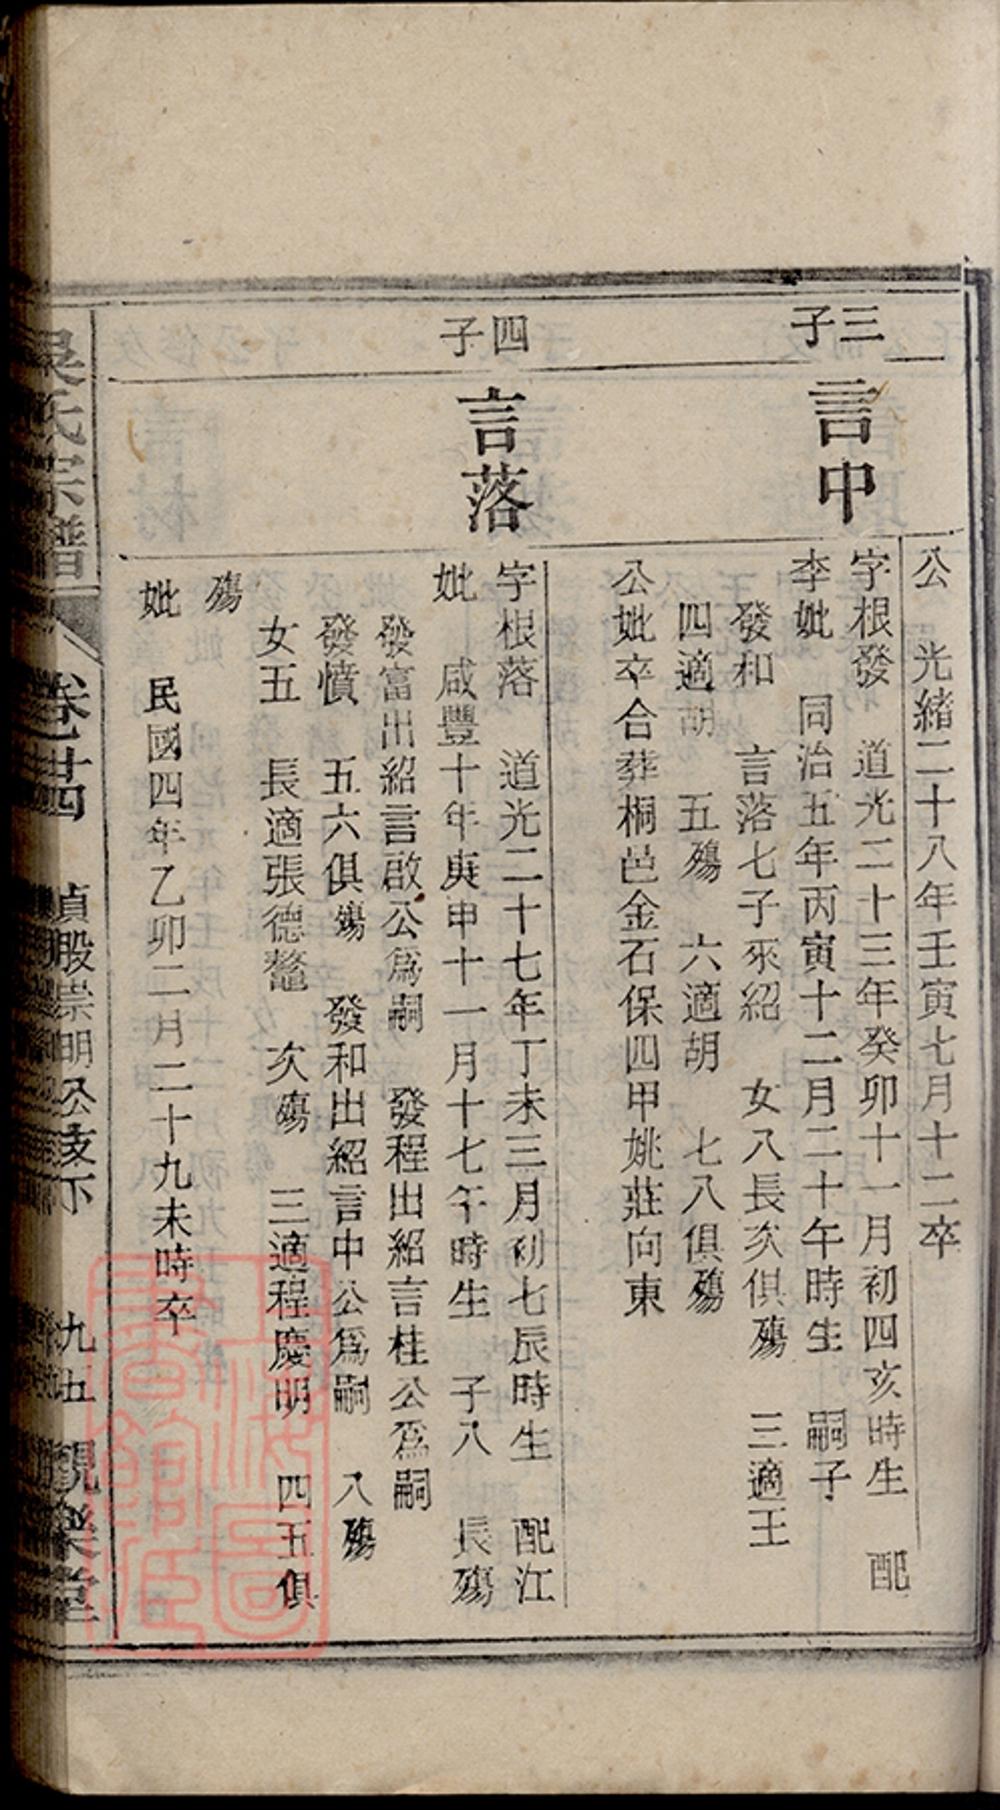 公　光緒二十八年壬寅七月十二卒
三子
言中
字根發　道光二十三年癸卯十一月初四亥時生　配
李妣　同治五年丙寅十二月二十午時生　嗣子
發和　言落七子來紹　女八長次俱殤　三適王
四適胡　五殤　六適胡　七八俱殤
公妣卒合葬桐邑金石保四甲姚莊向東
四子
言落
字根落　道光二十七年丁未三月初七辰時生　配江
妣　咸豐十年庚申十一月十七午時生　子八　長殤
發富出紹言啟公爲嗣　發程出紹言桂公爲嗣
發憤　五六俱殤　發和出紹言中公爲嗣　八殤
女五　長適張德鰲　次殤　三適程慶明　四五俱
殤
妣　民國四年乙卯二月二十九未時卒
吳氏宗譜　卷廿四　貞股崇明公支下　九五　親樂堂